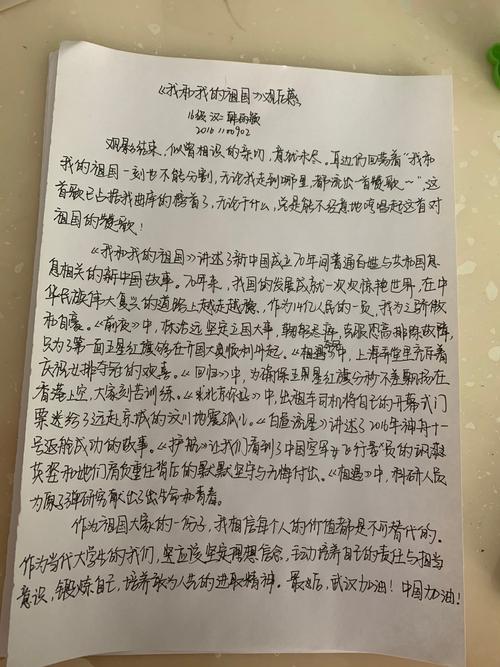 《我和我的祖国》观后感
16级 汉二
2016110902
观影结束，似曾相识的亲切，意犹未尽。耳边仍回荡着“我和
我的祖国一刻也不能分割，无论我走到哪里，都流出一首赞歌~”，这
首歌已占据我曲库的榜首了，无论干什么，总是能不经意地哼唱起这首对
祖国的赞歌！
《我和我的祖国》讲述了新中国成立70年间普通百姓与共和国息
息相关的新中国故事。70年来，我国的发展成就一次次惊艳世界，在中
华民族伟大复兴的道路上越走越稳，作为14亿人民的一员，我为之骄傲
和自豪。《前夜》中，林治远坚定立国大事，恐高排除故障，
只为了第一面五星红旗能够在开国大典顺利升起。《相遇》中，上海弄堂里充斥着
庆祝女排夺冠的欢喜。《回归》中，为确保五星红旗分秒不差飘扬在
香港上空，大家刻苦训练。《北京你好》中，出租车司机将自己的开幕式门
票送给了远赴京城的汶川地震孤儿。《白昼流星》讲述了2016年神舟十一
号返航成功的故事。《护航》让我们看到了中国空军女飞行员的飒爽
英姿和她们肩负重任背后的默默坚守与无悔付出。《相遇》中，科研人员
为原子弹研究献出了生命和青春。
作为祖国大家的一份子，我相信每个人的价值都是不可替代的。
作为当代大学生的我们，更应该坚定理想信念，主动培养自己的责任与担当
意识，锻炼自己，培养敢为人先的进取精神。最后，武汉加油！中国加油！